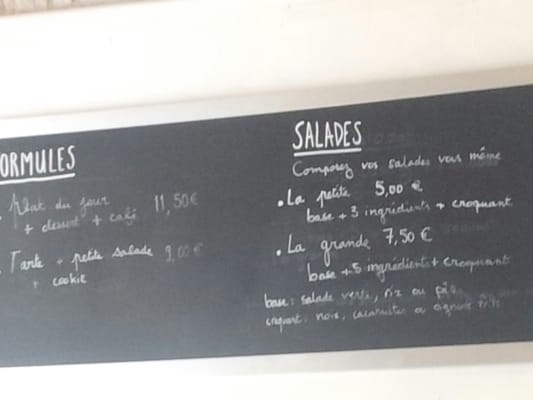 ORMULES
Plat du jour 11,50€
+ dessert + café
Tarte + petite salade 9,00€
+ cookie
SALADES
Composez vos salades vous même
• La petite 5,00 €
base + 3 ingrédients + croquant
• La grande 7,50 €
base + 5 ingrédients + croquant
base : salade verte, riz ou
croquant : noix, cacahuètes ou oignons frits